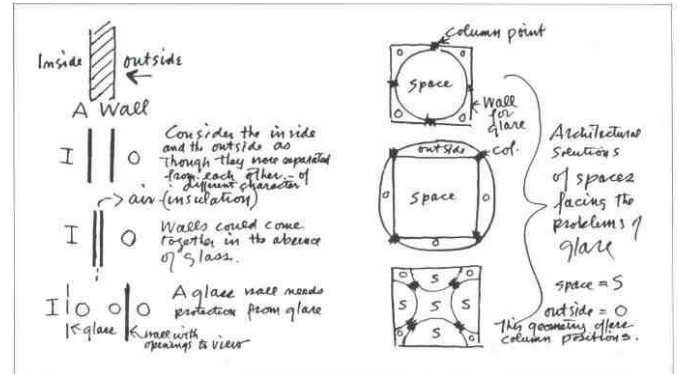 Inside
outside
A Wall
I
O
Consider the inside
and the outside as
though they were separated
from each other - of
different character
air (insulation)
I
O
Walls could come
together in the absence
of glass.
I
O
O
O
A glass wall needs
protection from glare
glare
wall with
openings to view
column point
O
O
space
O
O
Wall
for
glare
outside
col.
O
space
O
O
O
S
O
S
S
S
O
S
O
Architectural
Solutions
of spaces
facing the
problems of
glare
space = S
outside = O
This geometry gives
column positions.